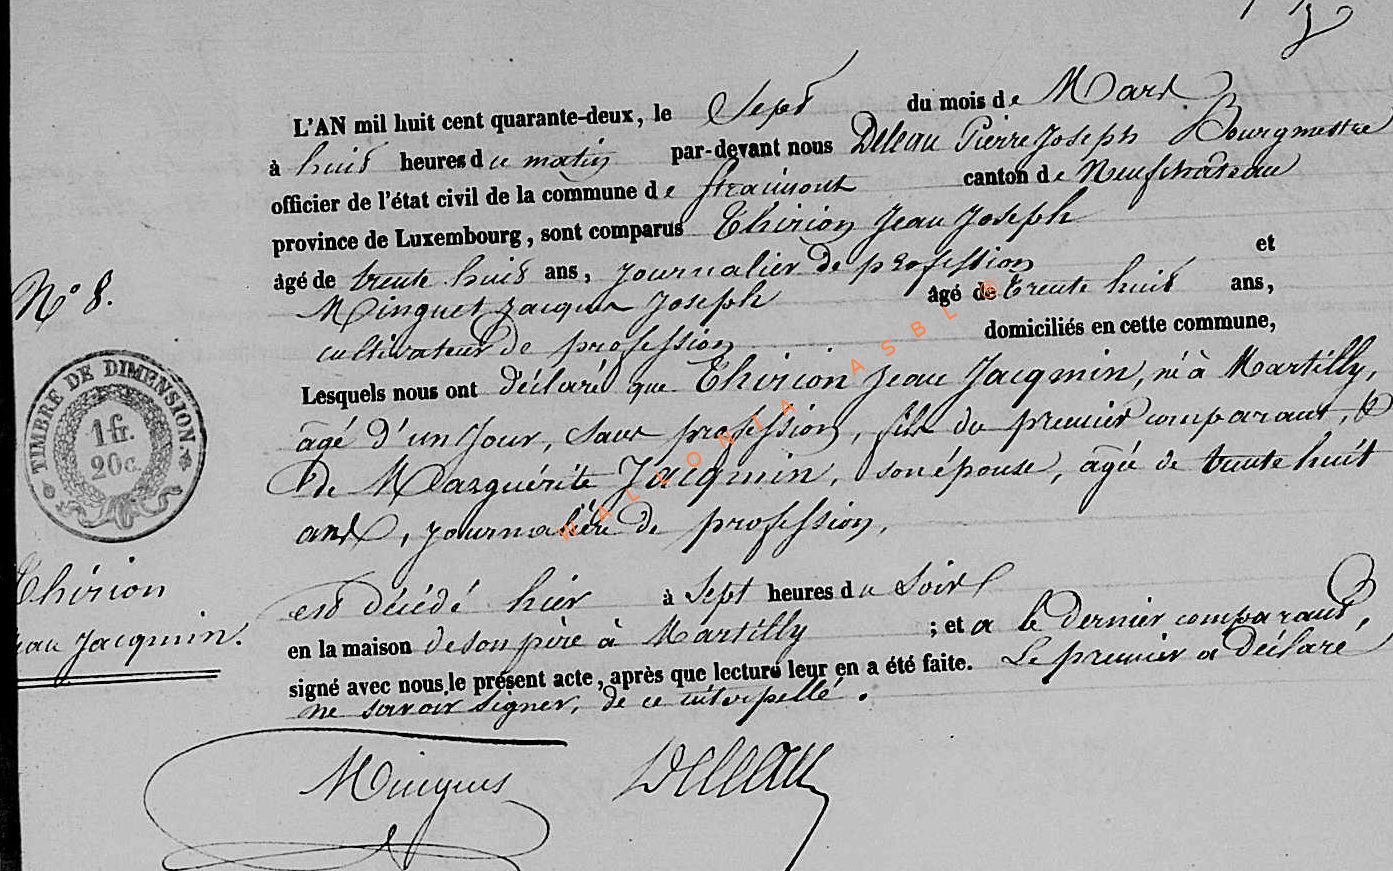 L'AN mil huit cent quarante-deux, le Sept du mois de Mars
à huit heures du matin par-devant nous Deleau Pierre Joseph Bourgmestre
officier de l'état civil de la commune de Straimont canton de Neufchateau
province de Luxembourg, sont comparus Thirion Jean Joseph
âgé de trente huit ans, journalier de profession et
Minguet Jacques Joseph âgé de trente huit ans,
cultivateur de profession domiciliés en cette commune,
Lesquels nous ont déclaré que Thirion Jean Jacqmin, né à Martilly,
âgé d'un jour, sans profession, fils du premier comparant, &
de Marguérite Jacqmin, son épouse, âgée de trente huit
ans, journalière de profession,
est décédé hier à Sept heures du Soir
en la maison de son père à Martilly ; et a le dernier comparant,
signé avec nous le présent acte, après que lecture leur en a été faite. Le premier a déclaré
ne savoir signer, de ce interpellé.
N° 8.
TIMBRE DE DIMENSION.
1 fr.
20 c.
Thirion
Jean Jacqmin.
Minguet Deleau
WALLONIA ASBL ©